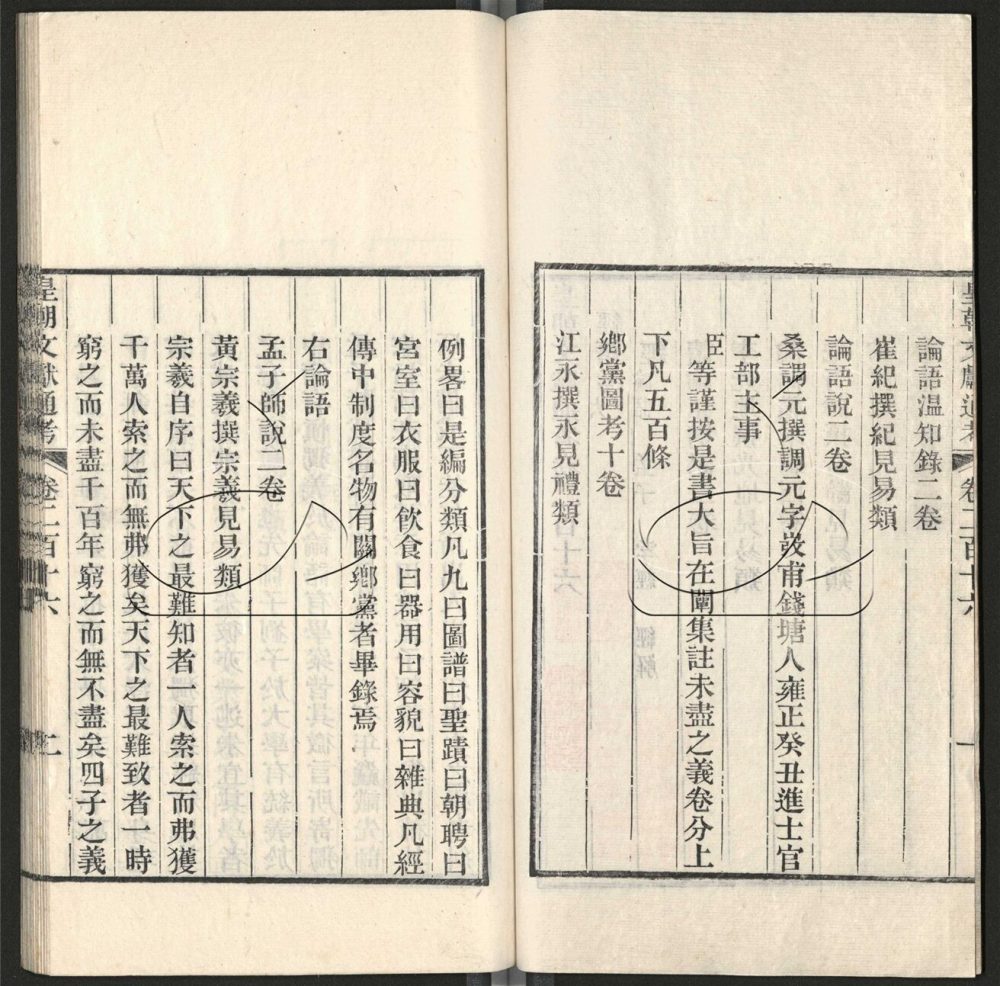 皇朝文獻通考 卷二百十六
論語溫知錄二卷
崔紀撰紀見易類
論語說二卷
桑調元撰調元字弢甫錢塘人雍正癸丑進士官
工部主事
臣等謹按是書大旨在闡集註未盡之義卷分上
下凡五百條
鄉黨圖考十卷
江永撰永見禮類
例畧曰是編分類凡九曰圖譜曰聖蹟曰朝聘曰
宮室曰衣服曰飲食曰器用曰容貌曰雜典凡經
傳中制度名物有關鄉黨者畢錄焉
右論語
孟子師說二卷
黃宗羲撰宗羲見易類
宗羲自序曰天下之最難知者一人索之而弗獲
千萬人索之而無弗獲矣天下之最難致者一時
窮之而未盡千百年窮之而無不盡矣四子之義
皇朝文獻通考 卷二百十六